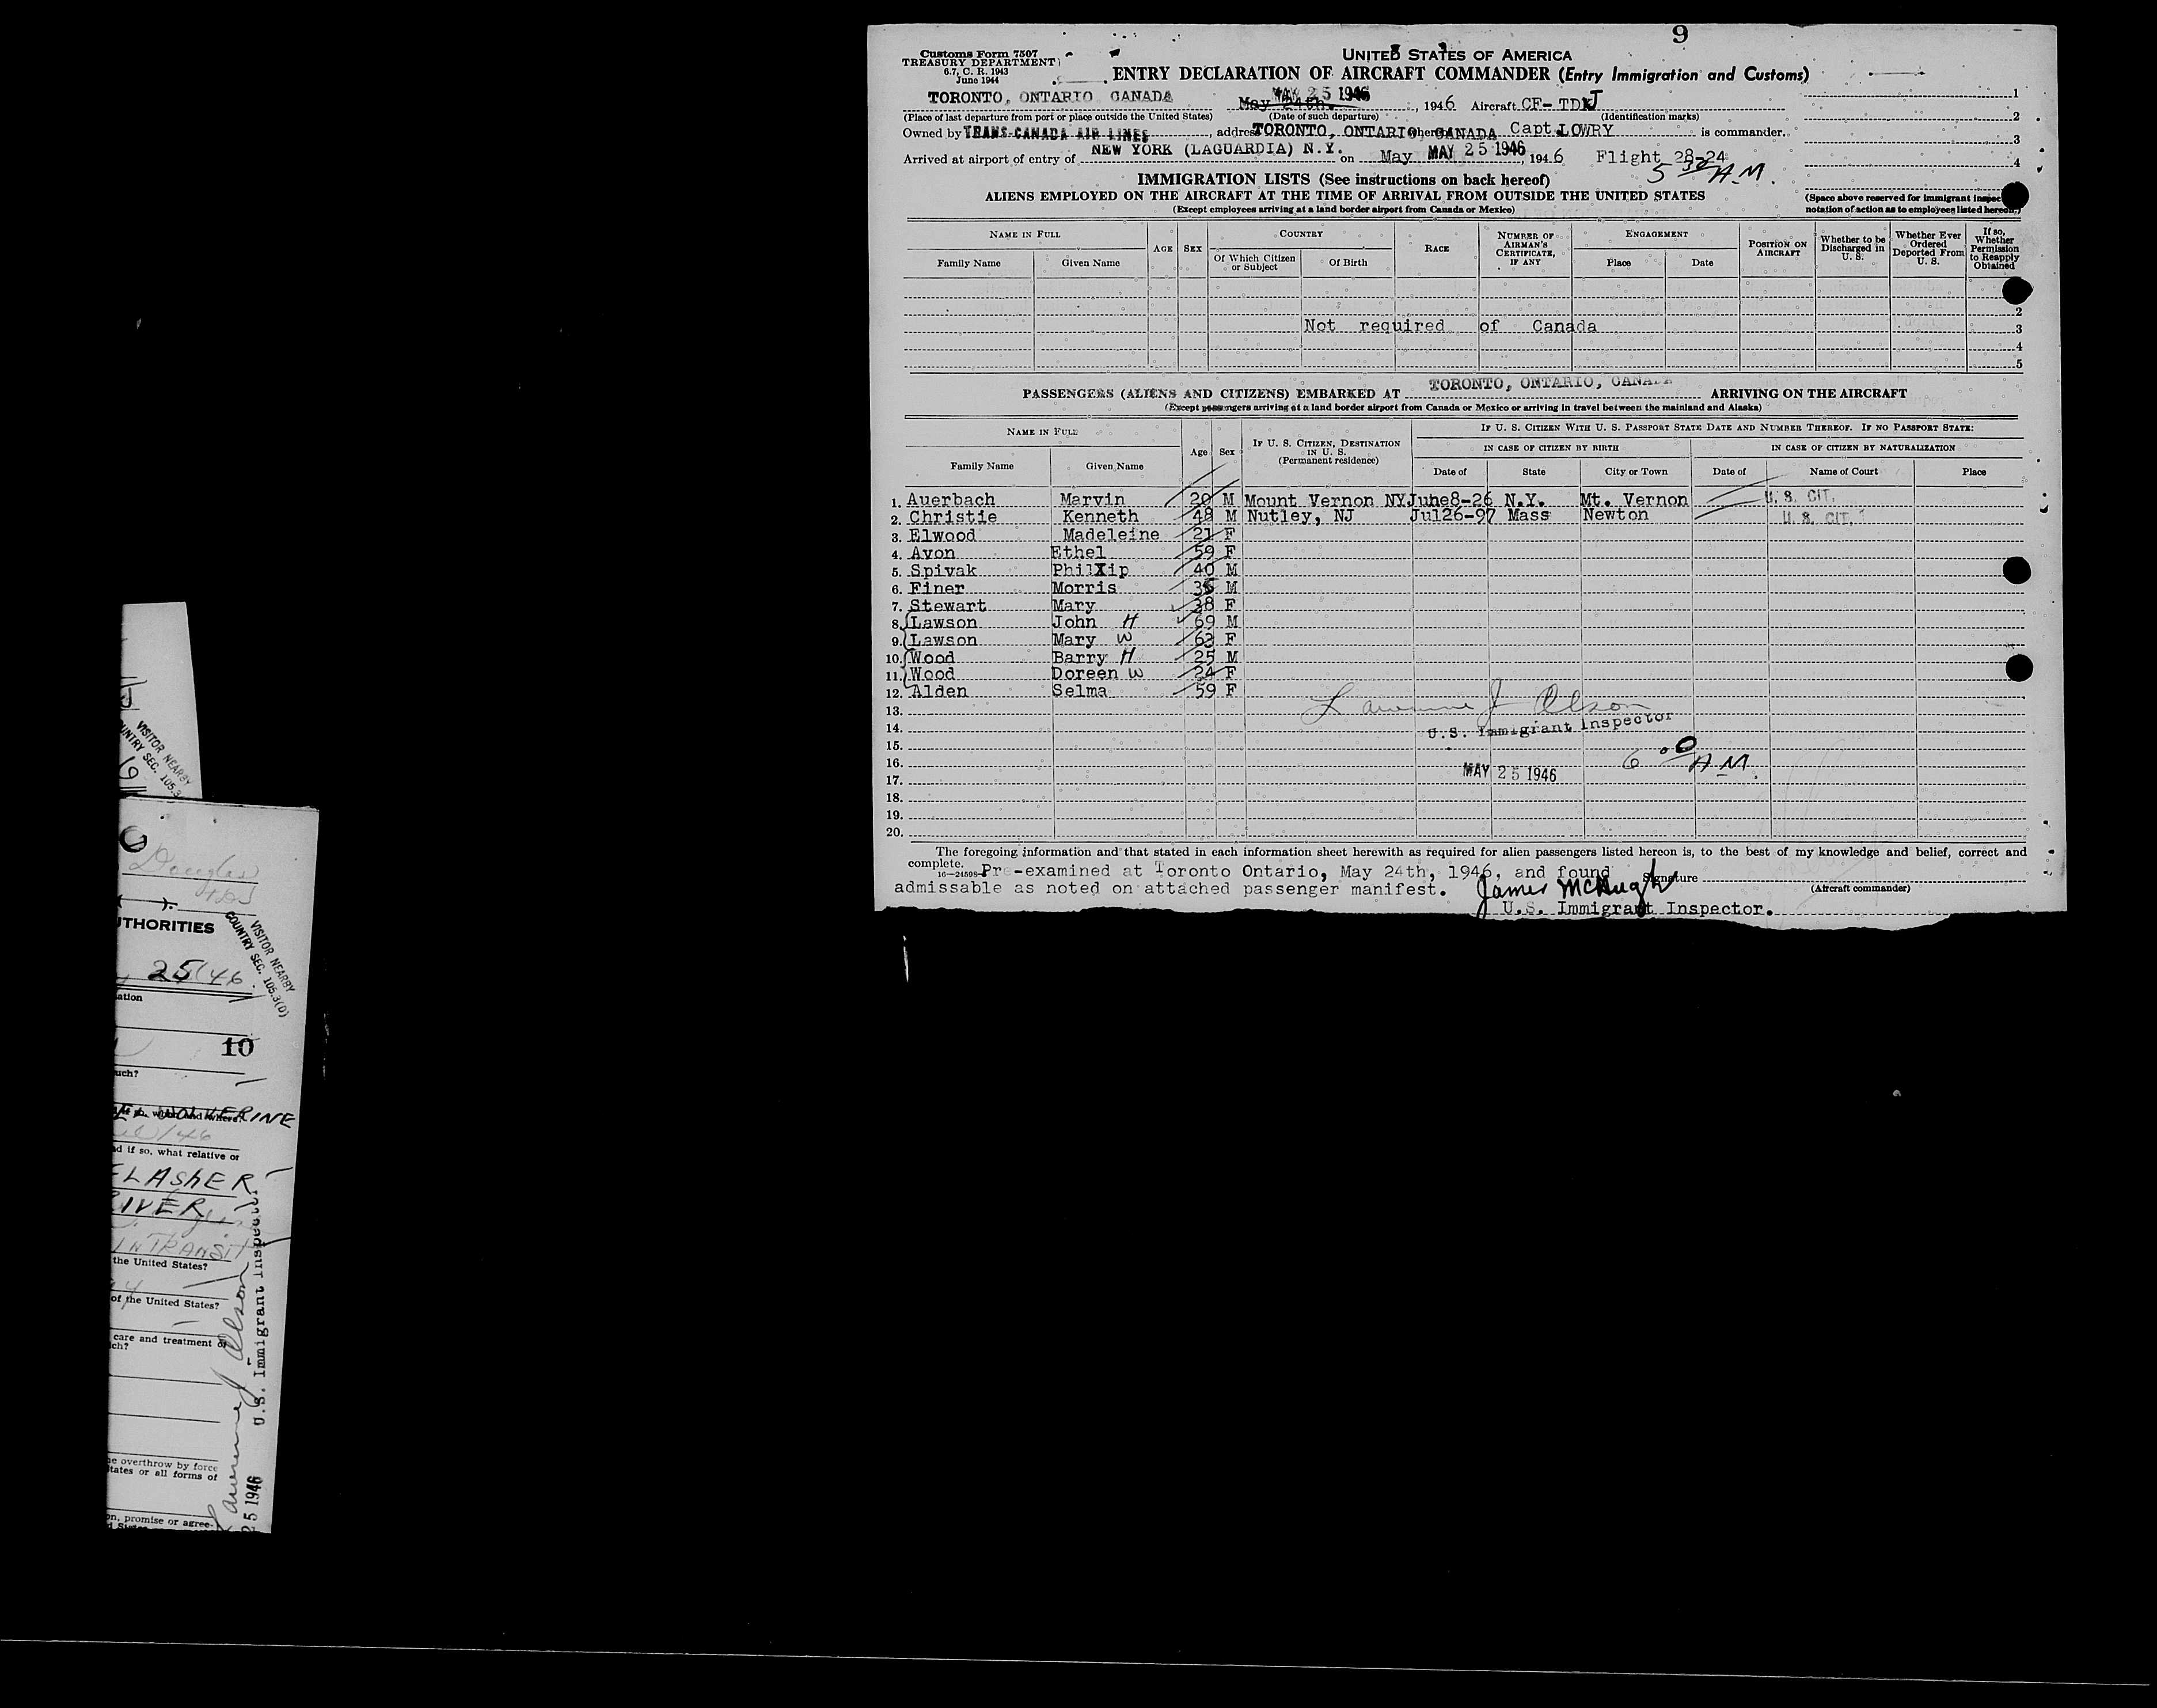 9
Customs Form 7507
TREASURY DEPARTMENT
6.7, C. R. 1943
June 1944
UNITED STATES OF AMERICA
ENTRY DECLARATION OF AIRCRAFT COMMANDER (Entry Immigration and Customs)
TORONTO, ONTARIO CANADA May 24th. MAY 25 1946, 1946 Aircraft CF-TDJ
(Place of last departure from port or place outside the United States) (Date of such departure) (Identification marks)
Owned by TRANS-CANADA AIR LINES, address TORONTO, ONTARIO CANADA Capt. LOWRY is commander.
Arrived at airport of entry of NEW YORK (LAGUARDIA) N.Y. on May MAY 25 1946, 1946 Flight 28-24
5 30 A.M.
1
2
3
4
IMMIGRATION LISTS (See instructions on back hereof)
ALIENS EMPLOYED ON THE AIRCRAFT AT THE TIME OF ARRIVAL FROM OUTSIDE THE UNITED STATES
(Except employees arriving at a land border airport from Canada or Mexico)
(Space above reserved for immigrant inspec
notation of action as to employees listed hereon.)
NAME IN FULL AGE SEX COUNTRY RACE NUMBER OF AIRMAN'S CERTIFICATE, IF ANY ENGAGEMENT POSITION ON AIRCRAFT Whether to be Discharged in U. S. Whether Ever Ordered Deported From U. S. If so, Whether Permission to Reapply Obtained
Family Name Given Name Of Which Citizen or Subject Of Birth Place Date
2
Not required of Canada 3
4
5
PASSENGERS (ALIENS AND CITIZENS) EMBARKED AT TORONTO, ONTARIO, CANADA ARRIVING ON THE AIRCRAFT
(Except passengers arriving at a land border airport from Canada or Mexico or arriving in travel between the mainland and Alaska)
NAME IN FULL Age Sex IF U. S. CITIZEN, DESTINATION IN U. S. (Permanent residence) IF U. S. CITIZEN WITH U. S. PASSPORT STATE DATE AND NUMBER THEREOF. IF NO PASSPORT STATE:
IN CASE OF CITIZEN BY BIRTH IN CASE OF CITIZEN BY NATURALIZATION
Family Name Given Name Date of State City or Town Date of Name of Court Place
1. Auerbach Marvin 20 M Mount Vernon NY June8-26 N.Y. Mt. Vernon U. S. CIT.
2. Christie Kenneth 48 M Nutley, NJ Jul26-97 Mass Newton U. S. CIT.
3. Elwood Madeleine 21 F
4. Avon Ethel 59 F
5. Spivak PhilXip 40 M
6. Finer Morris M
7. Stewart Mary 38 F
8. Lawson John H 69 M
9. Lawson Mary W 63 F
10. Wood Barry H 25 M
11. Wood Doreen W 24 F
12. Alden Selma 59 F
13.
Lawrence J Olson
14. U.S. Immigrant Inspector
15.
16. 6 00 A.M.
17. MAY 25 1946
18.
19.
20.
The foregoing information and that stated in each information sheet herewith as required for alien passengers listed hereon is, to the best of my knowledge and belief, correct and
complete.
16-24598 Pre-examined at Toronto Ontario, May 24th, 1946, and found Signature
admissable as noted on attached passenger manifest. James McHugh (Aircraft commander)
U.S. Immigrant Inspector.
VISITOR NEARBY
UNTRY SEC. 105.3
Douglas
UTHORITIES
VISITOR NEARBY
COUNTRY SEC. 105.3(D)
25/46
ation
10
uch?
if so, when and where?
WOLVERINE
/46
nd if so, what relative or
FLASHER
RIVER
IN TRANSIT
the United States?
of the United States?
care and treatment of
ch?
he overthrow by force
tates or all forms of
on, promise or agree-
d States
Lawrence J Olson
U.S. Immigrant Inspector
25 1946